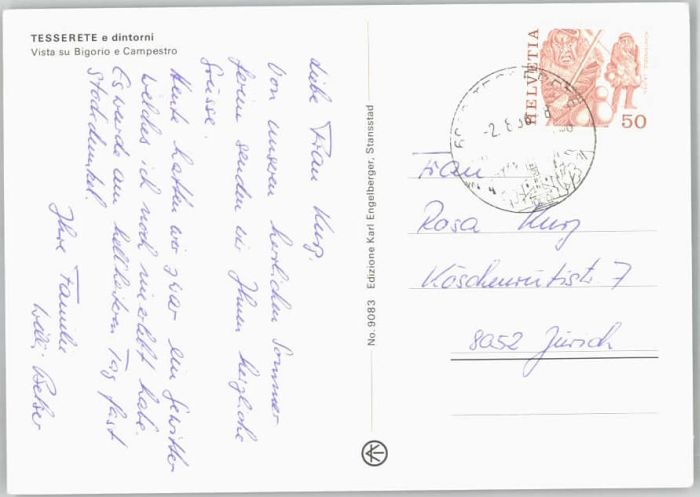 TESSERETE e dintorni
Vista su Bigorio e Campestro
Liebe Frau Kurz.
Von unseren herrlichen Sommer
ferien senden wir Ihnen herzliche
Grüsse.
Heute hatten wir zwar ein Gewitter
welches ich noch nie erlebt habe.
Es wurde am hellheitern Tag fast
Stockdunkel.
Ihre Familie
Willi
No. 9083 Edizione Karl Engelberger, Stansstad
HELVETIA
50
-2.8.
Frau
Rosa Kurz
Köschenrütistr. 7
8052 Zürich